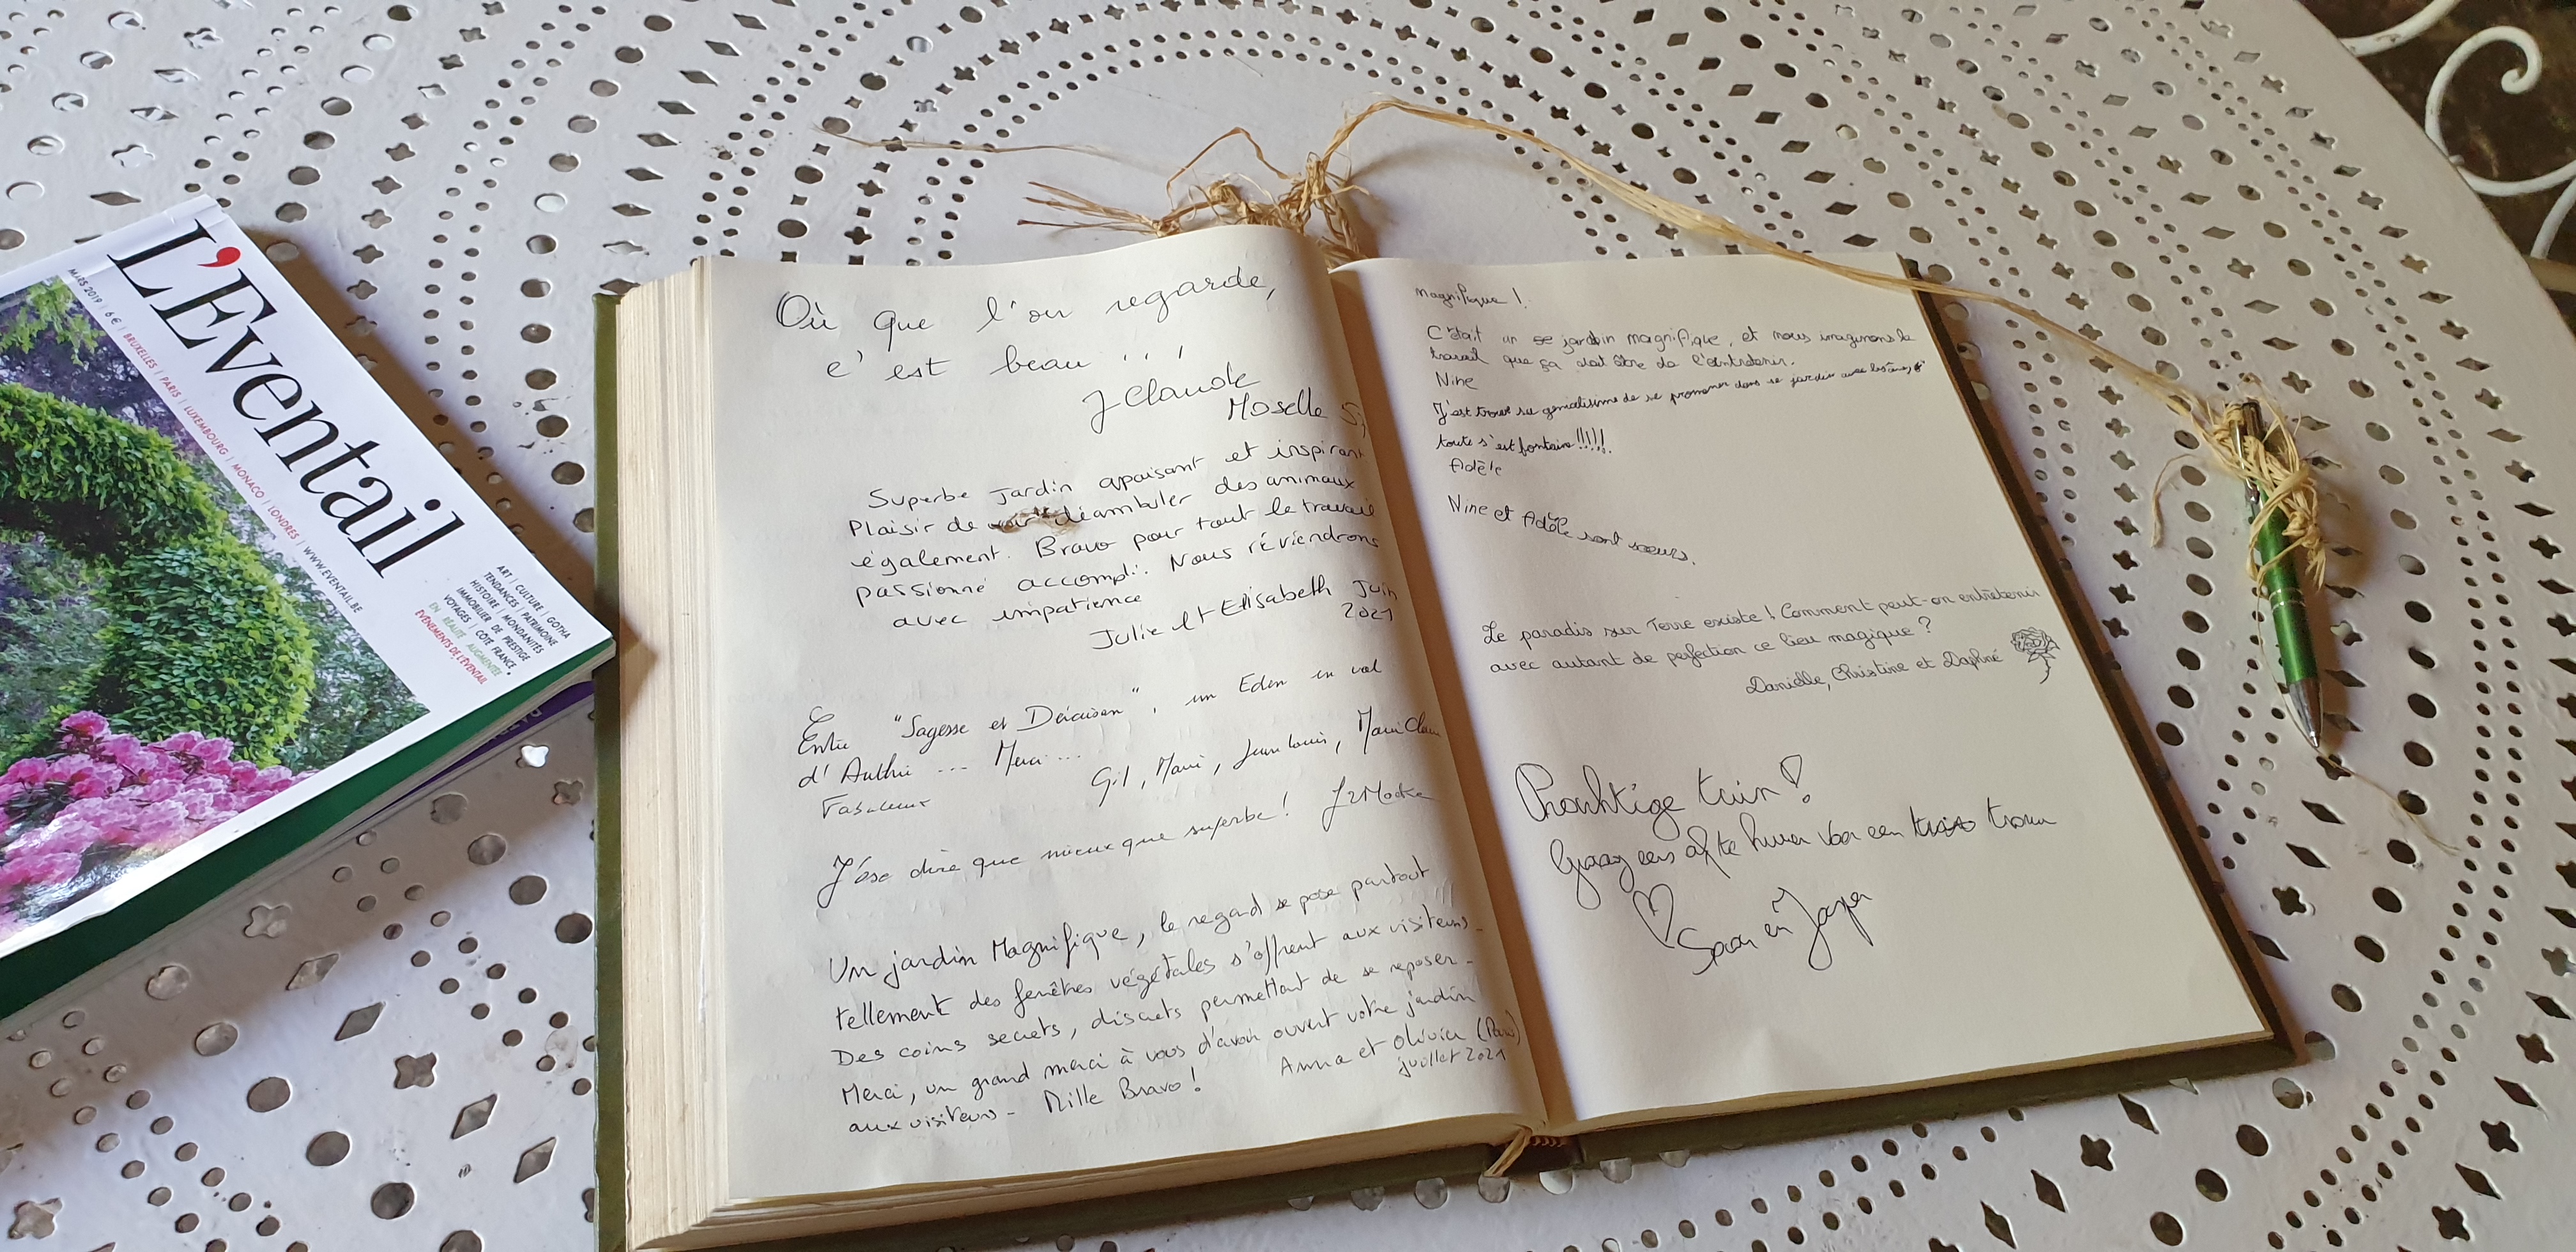 L'Eventail
MARS 2019 | 6€ | BRUXELLES | PARIS | LUXEMBOURG | MONACO | LONDRES | WWW.EVENTAIL.BE
ART | CULTURE | GOTHA
TENDANCES | PATRIMOINE
HISTOIRE | MONDANITÉS
IMMOBILIER DE PRESTIGE
VOYAGES | CÔTÉ FRANCE
EN RÉALITÉ AUGMENTÉE
ÉVÉNEMENTS DE L'ÉVENTAIL
Où que l'on regarde,
c'est beau...
J Claude
Moselle
Superbe jardin apaisant et inspirant
Plaisir de voir déambuler des animaux
également. Bravo pour tout le travail
passionné accompli. Nous réviendrons
avec impatience
Julie et Elisabeth Juin
2021
Entre "Sagesse et Déraison", un Eden en val
d'Authie ... Merci ...
Gil, Marie, Jean Louis, Marie Claire
Fabuleux
J'ose dire que mieux que superbe!
Un jardin Magnifique, le regard se pose partout
tellement des fenêtres végétales s'offrent aux visiteurs -
Des coins secrets, discrets permettant de se reposer -
Merci, un grand merci à vous d'avoir ouvert votre jardin
aux visiteurs - Mille Bravo!
Anna et Olivier
juillet 2021
magnifique !
C'était un se jardin magnifique, et nous imaginons le
travail que ça doit être de l'entretenir.
Nine
J'est trouve su genialisime de se promener dans se jardin avec
toute s'est fontaine !!!!!
Adèle
Nine et Adèle sont sœurs.
Le paradis sur Terre existe ! Comment peut-on entretenir
avec autant de perfection ce lieu magique ?
Danielle, Christine et Daphné
Prachtige tuin !
Graag eens af te huren voor een trouw
en